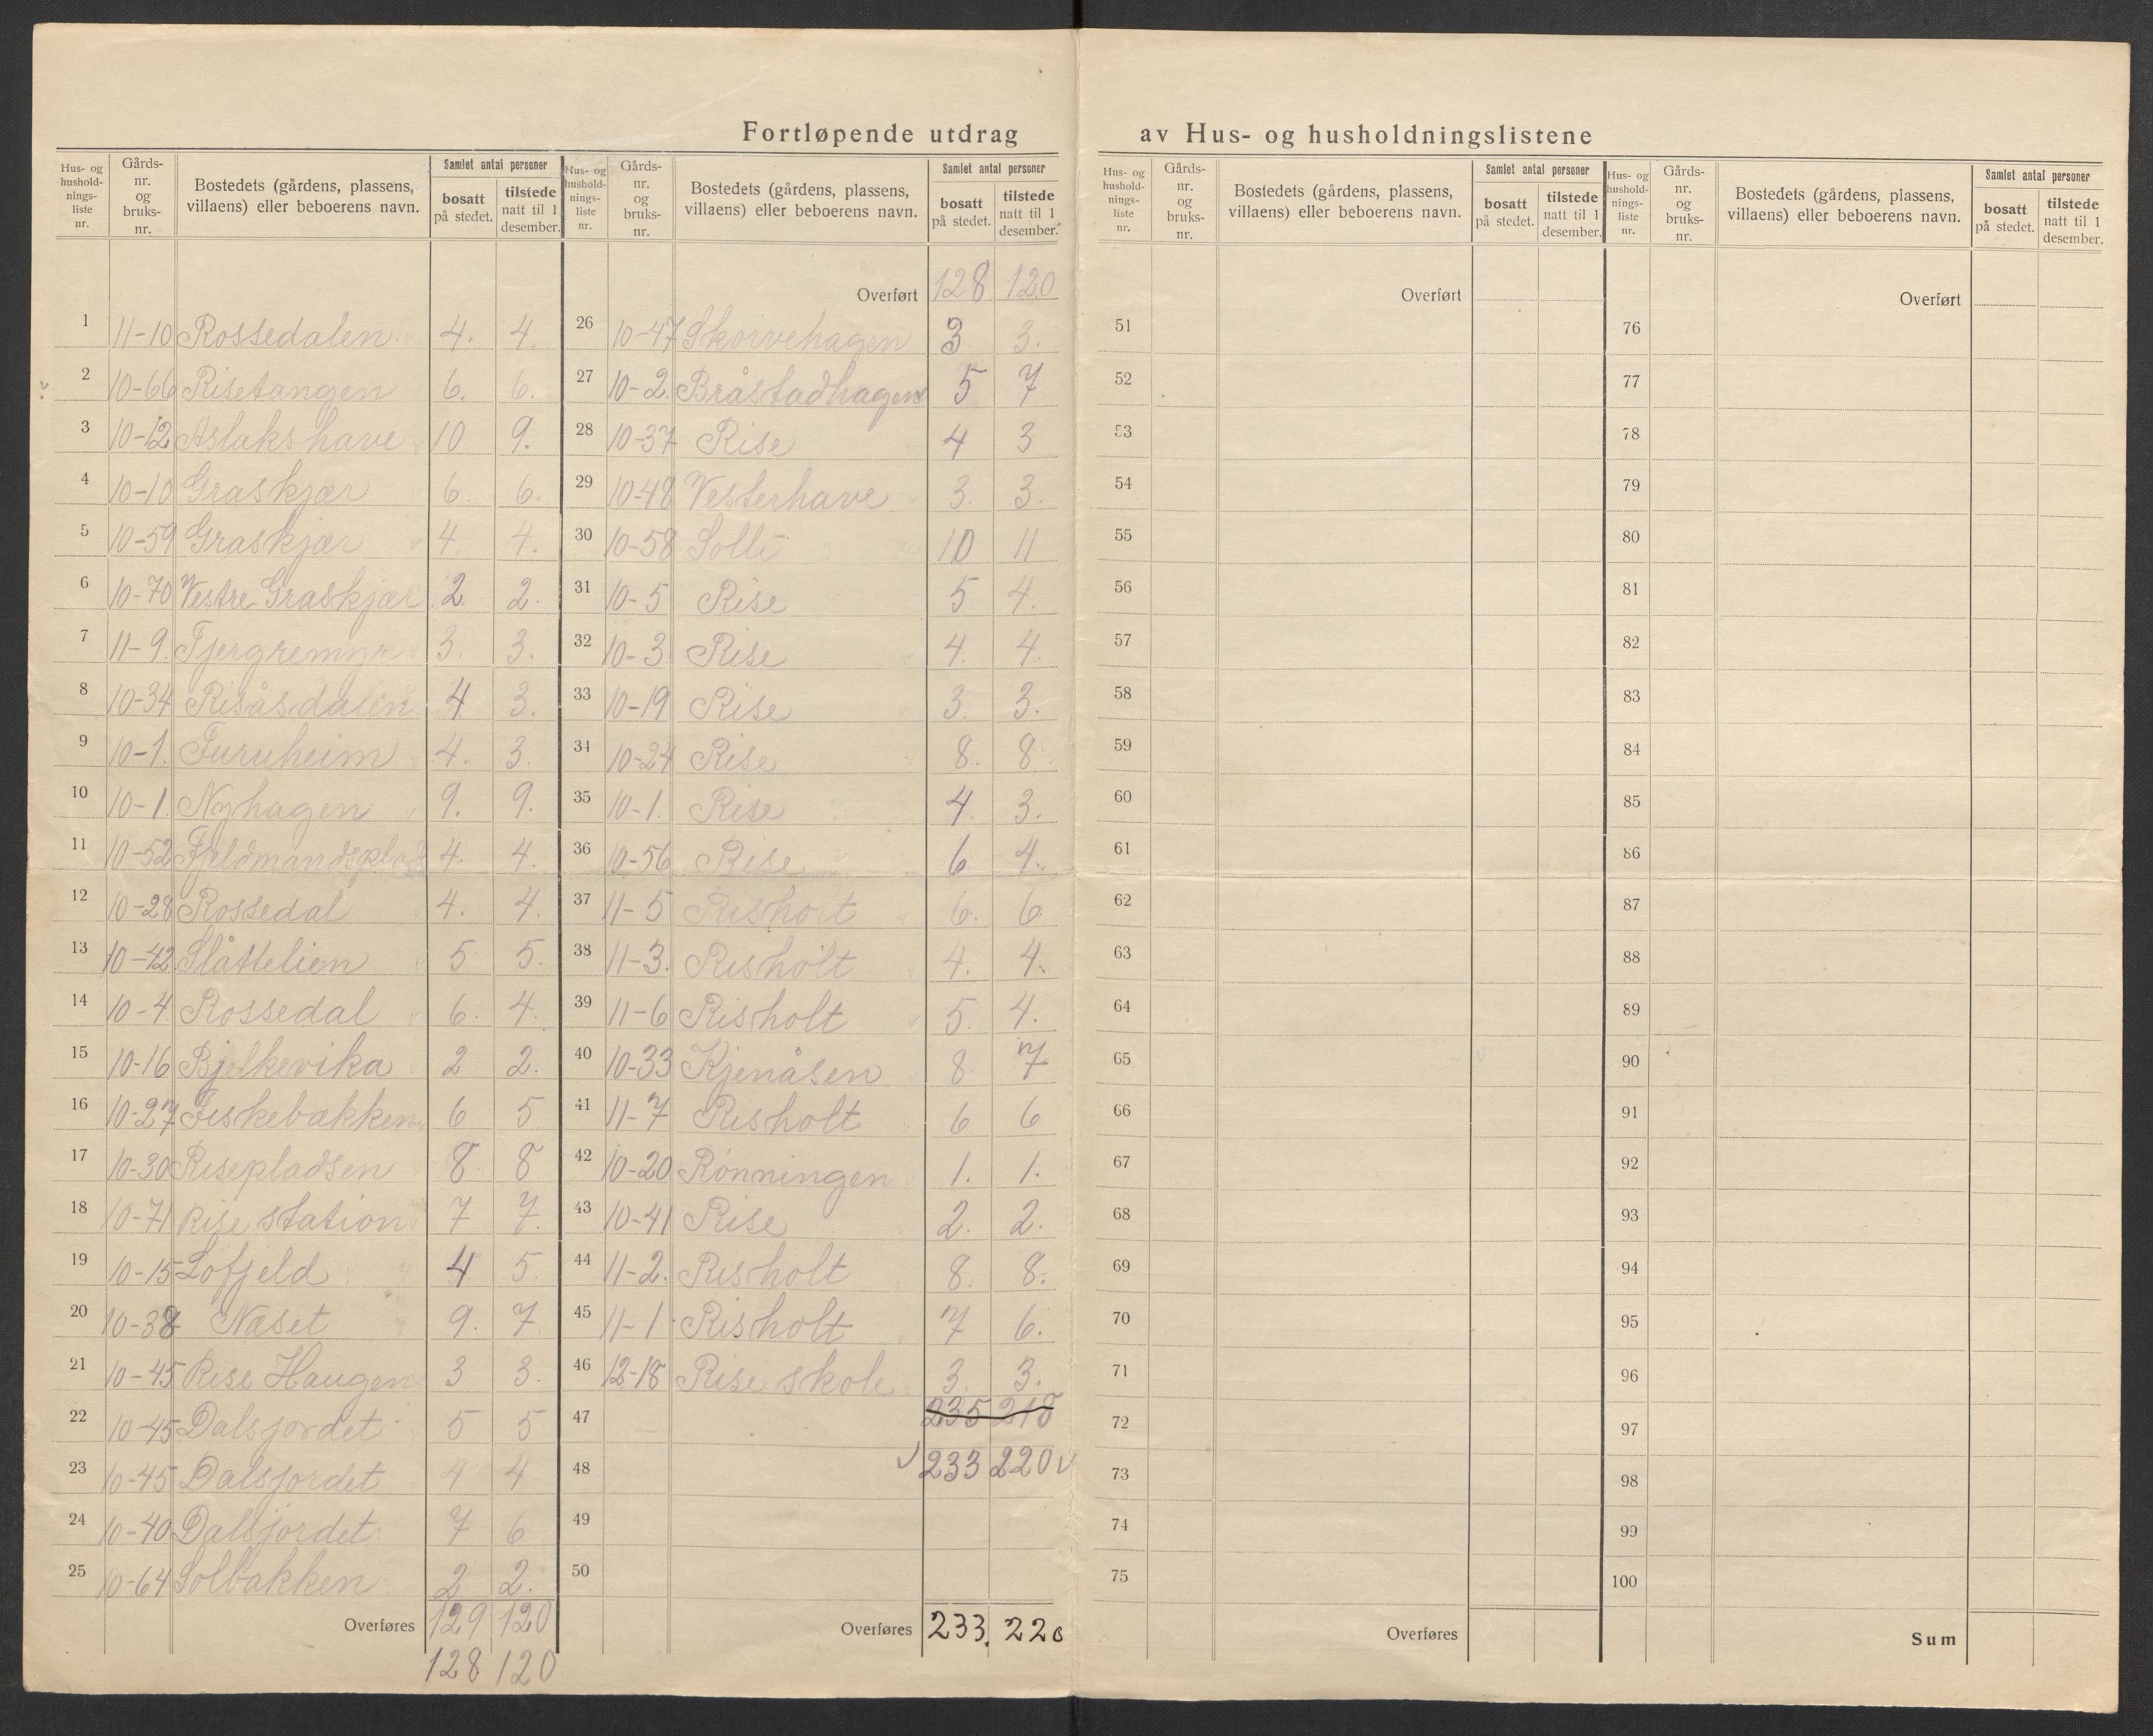 Fortløpende utdrag av Hus- og husholdningslistene
Hus- og husholdningsliste nr. | Gårdsnr. og bruksnr. | Bostedets (gårdens, plassens, villaens) eller beboerens navn. | Samlet antal personer bosatt på stedet. | tilstede natt til 1 desember.
1 11-10 Rossedalen 4. 4.
2 10-66 Risetangen 6. 6.
3 10-12 Aslakshave 10 9.
4 10-10 Graskjær 6. 6.
5 10-59 Graskjær 4. 4.
6 10-70 Vestre Graskjær 2. 2.
7 11-9. Tjergremyr 3. 3.
8 10-34 Risåsdalen 4 3.
9 10-1. Furuheim 4. 3.
10 10-1. Nyhagen 9. 9.
11 10-52 Fjeldmandsplads 4. 4.
12 10-28 Rossedal 4. 4.
13 10-42 Slåttelien 5 5.
14 10-4 Rossedal 6. 4.
15 10-16 Bjelkevika 2 2.
16 10-27 Fiskebakken 6 5
17 10-30 Risepladsen 8. 8
18 10-71 Rise station 7 7.
19 10-15 Lofjeld 4 5.
20 10-38 Næset 9. 7
21 10-45 Rise Haugen 3 3.
22 10-45 Dalsjordet 5 5
23 10-45 Dalsjordet 4 4
24 10-40 Dalsjordet 7 6
25 10-64 Solbakken 2 2.
Overføres 129 120
128 120
Hus- og husholdningsliste nr. | Gårdsnr. og bruksnr. | Bostedets (gårdens, plassens, villaens) eller beboerens navn. | Samlet antal personer bosatt på stedet. | tilstede natt til 1 desember.
Overført 128 120
26 10-47 Skorvehagen 3 3.
27 10-2. Bråstadhagen 5 7
28 10-37 Rise 4 3
29 10-48 Vesterhave 3. 3.
30 10-58 Solli 10 11
31 10-5 Rise 5 4.
32 10-3 Rise 4. 4.
33 10-19 Rise 3. 3.
34 10-24 Rise 8. 8.
35 10-1. Rise 4. 3.
36 10-56 Rise 6 4.
37 11-5 Risholt 6. 6
38 11-3. Risholt 4. 4.
39 11-6 Risholt 5. 4.
40 10-33 Kjenåsen 8 7
41 11-7 Risholt 6 6
42 10-20 Rønningen 1. 1.
43 10-41 Rise 2. 2.
44 11-2. Risholt 8. 8.
45 11-1 Risholt 7 6.
46 12-18 Rise skole 3. 3.
47 235 218
48 233 220
49
50
Overføres 233. 220
Hus- og husholdningsliste nr. | Gårdsnr. og bruksnr. | Bostedets (gårdens, plassens, villaens) eller beboerens navn. | Samlet antal personer bosatt på stedet. | tilstede natt til 1 desember.
Overført
51
52
53
54
55
56
57
58
59
60
61
62
63
64
65
66
67
68
69
70
71
72
73
74
75
Overføres
Hus- og husholdningsliste nr. | Gårdsnr. og bruksnr. | Bostedets (gårdens, plassens, villaens) eller beboerens navn. | Samlet antal personer bosatt på stedet. | tilstede natt til 1 desember.
Overført
76
77
78
79
80
81
82
83
84
85
86
87
88
89
90
91
92
93
94
95
96
97
98
99
100
Sum